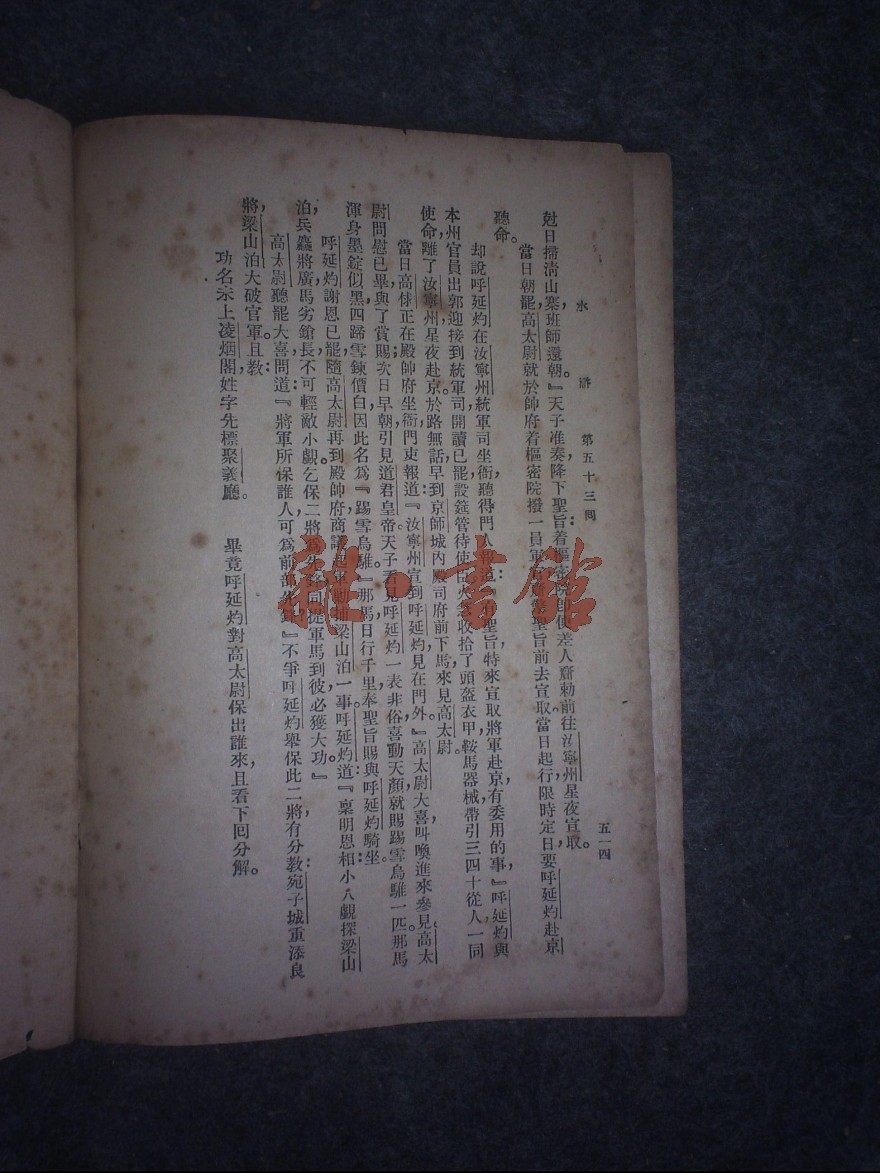 水滸 第五十三回 五一四
尅日掃清山寨，班師還朝。』天子准奏，降下聖旨：着樞密院卽便差人齎勅前往汝寧州星夜宣取。
當日朝罷，高太尉就於帥府着樞密院撥一員軍聖旨前去宣取。當日起行，限時定日，要呼延灼赴京
聽命。
却說呼延灼在汝寧州統軍司坐衙，聽得門人報道：聖旨特來宣取將軍赴京，有委用的事。』呼延灼與
本州官員出郭迎接到統軍司。開讀已罷，設筵管待使臣；火急收拾了頭盔衣甲，鞍馬器械，帶引三四十從人，一同
使命，離了汝寧州，星夜赴京。於路無話，早到京師城內殿司府前下馬，來見高太尉。
當日高俅正在殿帥府坐衙。門吏報道：『汝寧州宣到呼延灼，見在門外。』高太尉大喜，叫喚進來參見。高太
尉問慰已畢，與了賞賜；次日早朝，引見道君皇帝。天子看見呼延灼一表非俗，喜動天顏，就賜踢雪烏騅一匹。那馬，
渾身墨錠似黑，四蹄雪鍊價白，因此名爲『踢雪烏騅。』那馬，日行千里。奉聖旨賜與呼延灼騎坐。
呼延灼謝恩已罷，隨高太尉再到殿帥府，商議起軍勦捕梁山泊一事。呼延灼道：『稟明恩相：小人覷探梁山
泊，兵麤將廣，馬劣鎗長，不可輕敵小覷。乞保二將爲先鋒，同提軍馬到彼，必獲大功。』
高太尉聽罷大喜，問道：『將軍所保誰人，可爲前部先鋒？』不爭呼延灼舉保此二將，有分教：宛子城重添良
將，梁山泊大破官軍。且教：
功名未上凌烟閣，姓字先標聚義廳。
畢竟呼延灼對高太尉保出誰來，且看下囘分解。
雜·書館